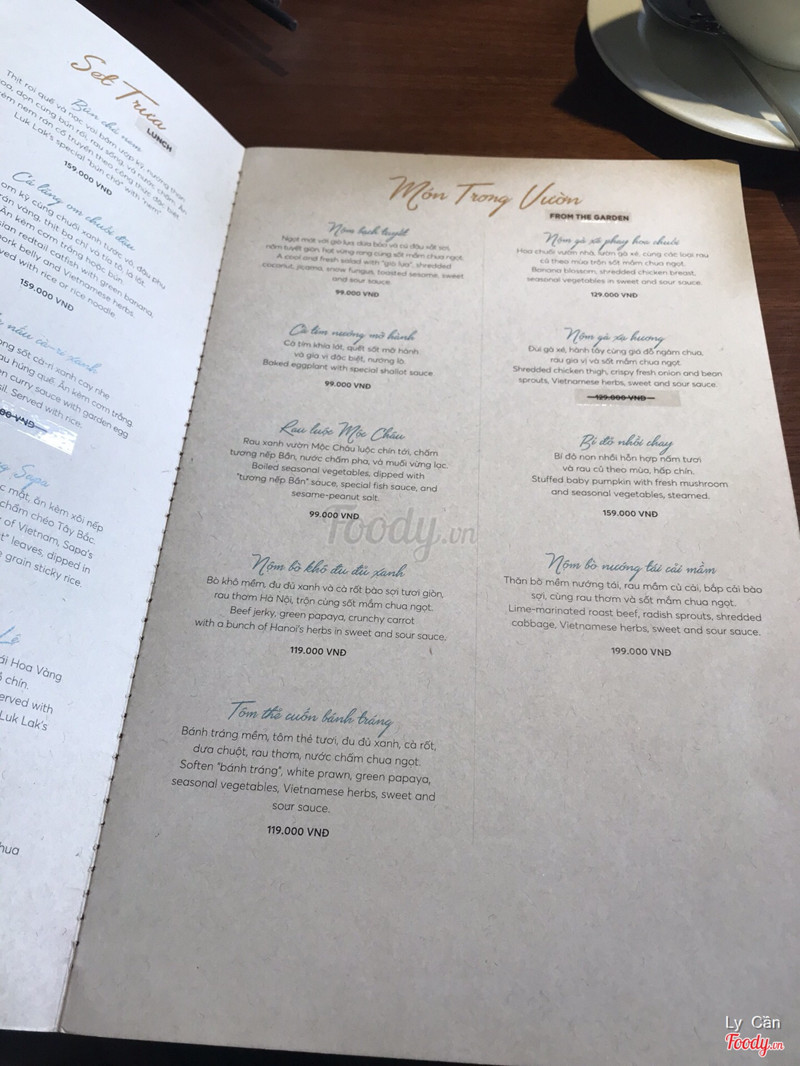 Set Trưa
LUNCH
Bún chả nem
Thịt rọi quế và nạc vai băm ướp kỹ, nướng than
hoa, dọn cùng bún rối, rau sống, và nước chấm. Ăn
kèm nem rán cổ truyền theo công thức đặc biệt
Luk Lak's special "bún chả" with "nem".
159.000 VNĐ
Cá lăng om chuối đậu
om kỹ cùng chuối xanh tước vỏ, đậu phụ
rán vàng, thịt ba chỉ và tía tô, lá lốt
Ăn kèm cơm trắng hoặc bún.
sian redtail catfish with green banana,
pork belly and Vietnamese herbs.
rved with rice or rice noodle.
159.000 VNĐ
nấu cà-ri xanh
ong sốt cà-ri xanh cay nhẹ
au húng quế. Ăn kèm cơm trắng
en curry sauce with garden egg
sil. Served with rice.
Sapa
c mật, ăn kèm xôi nếp
chẩm chéo Tây Bắc.
of Vietnam, Sapa's
t" leaves, dipped in
grain sticky rice.
Lê
ái Hoa Vàng
chín.
erved with
Luk Lak's
hua
Món Trong Vườn
FROM THE GARDEN
Nộm bạch tuyết
Ngọt mát với giò lụa, dừa bào và củ đậu xắt sợi,
nấm tuyết giòn, hạt vừng rang cùng sốt mắm chua ngọt.
A cool and fresh salad with "giò lụa", shredded
coconut, jicama, snow fungus, toasted sesame, sweet
and sour sauce.
99.000 VNĐ
Cà tím nướng mỡ hành
Cà tím khía lát, quết sốt mỡ hành
và gia vị đặc biệt, nướng lò.
Baked eggplant with special shallot sauce.
99.000 VNĐ
Rau luộc Mộc Châu
Rau xanh vườn Mộc Châu luộc chín tới, chấm
tương nếp Bần, nước chấm pha, và muối vừng lạc.
Boiled seasonal vegetables, dipped with
"tương nếp Bần" sauce, special fish sauce, and
sesame-peanut salt.
99.000 VNĐ
Nộm bò khô đu đủ xanh
Bò khô mềm, đu đủ xanh và cà rốt bào sợi tươi giòn,
rau thơm Hà Nội, trộn cùng sốt mắm chua ngọt.
Beef jerky, green papaya, crunchy carrot
with a bunch of Hanoi's herbs in sweet and sour sauce.
119.000 VNĐ
Tôm thẻ cuốn bánh tráng
Bánh tráng mềm, tôm thẻ tươi, đu đủ xanh, cà rốt,
dưa chuột, rau thơm, nước chấm chua ngọt.
Soften "bánh tráng", white prawn, green papaya,
seasonal vegetables, Vietnamese herbs, sweet and
sour sauce.
119.000 VNĐ
Nộm gà xé phay hoa chuối
Hoa chuối vườn nhà, lườn gà xé, cùng các loại rau
củ theo mùa trộn sốt mắm chua ngọt.
Banana blossom, shredded chicken breast,
seasonal vegetables in sweet and sour sauce.
129.000 VNĐ
Nộm gà xạ hương
Đùi gà xé, hành tây cùng giá đỗ ngâm chua,
rau gia vị và sốt mắm chua ngọt.
Shredded chicken thigh, crispy fresh onion and bean
sprouts, Vietnamese herbs, sweet and sour sauce.
129.000 VNĐ
Bí đỏ nhồi chay
Bí đỏ non nhồi hỗn hợp nấm tươi
và rau củ theo mùa, hấp chín.
Stuffed baby pumpkin with fresh mushroom
and seasonal vegetables, steamed.
159.000 VNĐ
Nộm bò nướng tái cải mầm
Thăn bò mềm nướng tái, rau mầm củ cải, bắp cải bào
sợi, cùng rau thơm và sốt mắm chua ngọt.
Lime-marinated roast beef, radish sprouts, shredded
cabbage, Vietnamese herbs, sweet and sour sauce.
199.000 VNĐ
Foody.vn
Ly Cần
Foody.vn